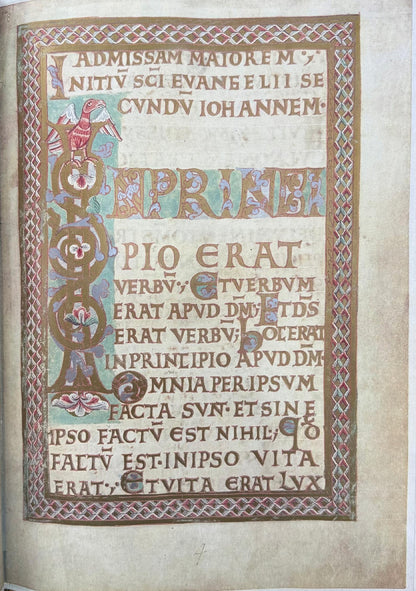 AD MISSAM MAIOREM·,
INITIŪ SC̄I EVANGELII SE
CUNDŪ IOHANNEM·
IN PRINCI
PIO ERAT
VERBŪ; ET VERBUM
ERAT APUD DM̄; ET DS̄
ERAT VERBŪ; HOC ERAT
IN PRINCIPIO APUD DM̄
OMNIA PER IPSUM
FACTA SUN· ET SINE
IPSO FACTŪ EST NIHIL; QD̄
FACTŪ EST· IN IPSO VITA
ERAT·, ET VITA ERAT LUX
4